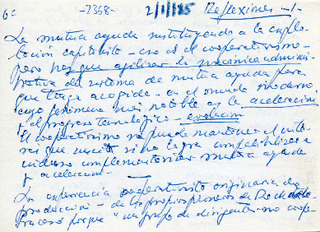 6º -7368- 2/11/85 Reflexiones -1-
La mutua ayuda sustituyendo a la explo-
tación capitalista - eso es el cooperativismo -
pero hay que aplicar la mecánica adminis-
trativa del sistema de mutua ayuda para
que tenga acogida - en el mundo moderno,
cuyo fenómeno más notable es la aceleración
del progreso tecnológico - evolución
El cooperativismo no puede mantener el inte-
rés que suscitó si no logra compatibilizar e
incluso complementarizar mutua ayuda
y aceleración -
La experiencia cooperativista originaria de
producción - de los propios pioneros de Rochdale
fracasó porque "un grupo de dirigentes no coope-